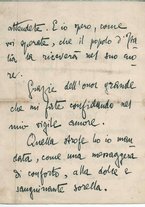 attendete. E io spero, come
voi sperate, che il popolo d'Ita-
lia la riceverà nel suo cuo-
re.
Grazie dell'onor grande
che mi fate confidando nel
mio vigile amore.
Quella strofe ho io man-
data, come una messaggera
di conforto, alla dolce e
sanguinante sorella.